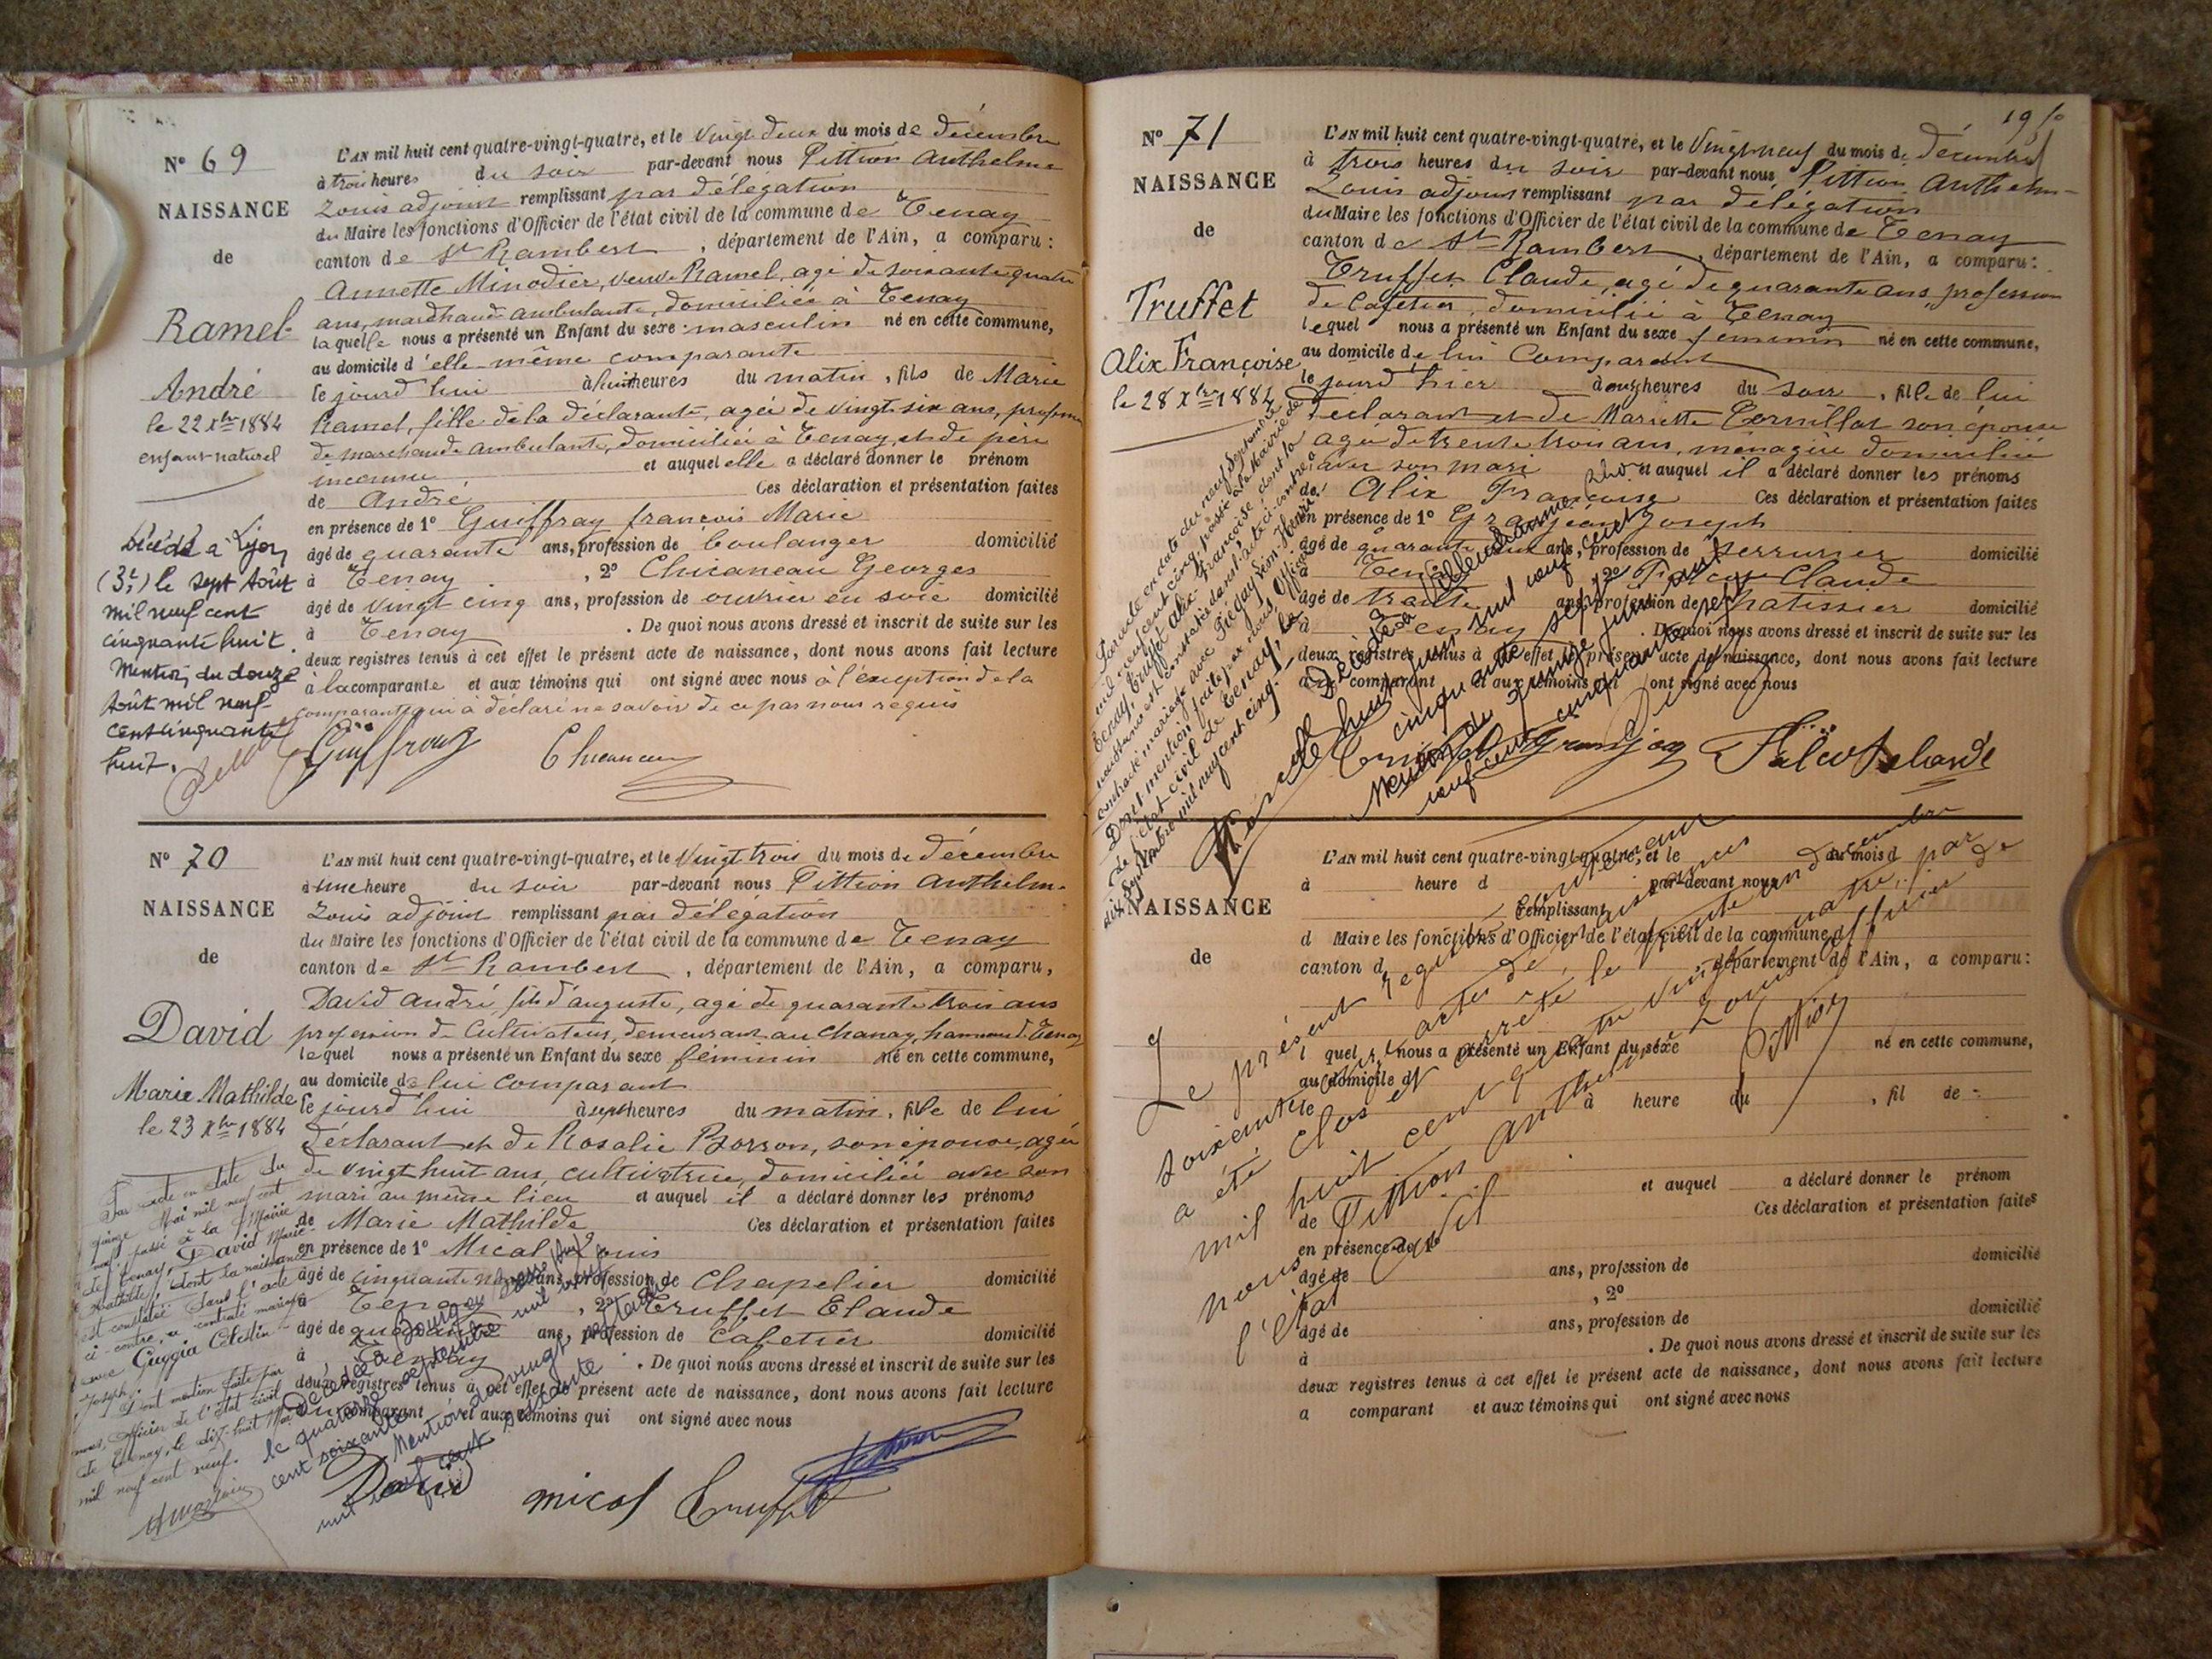 N° 69
NAISSANCE
de
Ramel
André
le 22 Xbre 1884
enfant naturel
Décédé à Lyon
(3e) le sept Août
mil neuf cent
cinquante huit.
Mention du douze
Août mil neuf
cent cinquante
huit.
L'AN mil huit cent quatre-vingt-quatre, et le Vingt deux du mois de décembre
à trois heures du soir par-devant nous Pittion Anthelme
Louis adjoint remplissant par délégation
du Maire les fonctions d'Officier de l'état civil de la commune de Tenay
canton de St Rambert, département de l'Ain, a comparu:
Annette Minodier, veuve Ramel, agée de soixante quatre
ans, marchande ambulante, domiciliée à Tenay
laquelle nous a présenté un Enfant du sexe masculin né en cette commune,
au domicile d'elle-même comparante
le jourd'hui à huit heures du matin, fils de Marie
Ramel, fille de la déclarante, agée de vingt six ans, profession
de marchande ambulante, domiciliée à Tenay, et de père
inconnu et auquel elle a déclaré donner le prénom
de André Ces déclaration et présentation faites
en présence de 1° Guiffray françois Marie
âgé de quarante ans, profession de boulanger domicilié
à Tenay, 2° Chuaneau Georges
âgé de vingt cinq ans, profession de ouvrier en soie domicilié
à Tenay. De quoi nous avons dressé et inscrit de suite sur les
deux registres tenus à cet effet le présent acte de naissance, dont nous avons fait lecture
à la comparante et aux témoins qui ont signé avec nous à l'exception de la
comparante qui a déclaré ne savoir de ce par nous requis
Guiffray
N° 70
NAISSANCE
de
David
Marie Mathilde
le 23 Xbre 1884
Par acte en date du
quinze Mai mil neuf cent
neuf, passé à la Mairie
de Tenay, David Marie
Mathilde, dont la naissance
est constatée dans l'acte
ci-contre, a contracté mariage
avec Guggia Célestin
Joseph.
Dont mention faite par
nous, Officier de l'Etat civil
de Tenay, le dix-huit Mai
mil neuf cent neuf.
L'AN mil huit cent quatre-vingt-quatre, et le Vingt trois du mois de décembre
à une heure du soir par-devant nous Pittion Anthelme
Louis adjoint remplissant par délégation
du Maire les fonctions d'Officier de l'état civil de la commune de Tenay
canton de St Rambert, département de l'Ain, a comparu,
David André fils d'auguste, agé de quarante trois ans
profession de Cultivateur, demeurant au Chanay, hameau de Tenay
lequel nous a présenté un Enfant du sexe féminin né en cette commune,
au domicile de lui comparant
le jourd'hui à sept heures du matin, fille de lui
déclarant et de Rosalie Borron, son épouse, agée
de vingt huit ans, cultivatrice, domiciliée avec son
mari au même lieu et auquel il a déclaré donner les prénoms
de Marie Mathilde Ces déclaration et présentation faites
en présence de 1° Micol Louis
âgé de cinquante ans, profession de Chapelier domicilié
à Tenay, 2° Truffet Claude
âgé de quarante ans, profession de Cafetier domicilié
à Tenay. De quoi nous avons dressé et inscrit de suite sur les
deux registres tenus à cet effet le présent acte de naissance, dont nous avons fait lecture
au comparant et aux témoins qui ont signé avec nous
Décédée à Bourg en Bresse (Ain)
le quatorze septembre mil neuf
cent soixante
Mention du vingt septembre
mil neuf cent soixante
David micol Truffet
19
N° 71
NAISSANCE
de
Truffet
Alix Françoise
le 28 Xbre 1884
Par acte en date du neuf Septembre
mil neuf cent cinq, passé à la Mairie de
Tenay, Truffet Alix Françoise dont la
naissance est constatée dans l'acte ci-contre, a
contracté mariage avec Piégay Henri.
Dont mention faite par nous, Officier
de l'état civil de Tenay, le
dix Septembre mil neuf cent cinq.
L'AN mil huit cent quatre-vingt-quatre, et le Vingt neuf du mois de décembre
à trois heures du soir par-devant nous Pittion Anthelme
Louis adjoint remplissant par délégation
du Maire les fonctions d'Officier de l'état civil de la commune de Tenay
canton de St Rambert, département de l'Ain, a comparu:
Truffet Claude, agé de quarante ans, profession
de Cafetier, domicilié à Tenay
lequel nous a présenté un Enfant du sexe féminin né en cette commune,
au domicile de lui Comparant
le jourd'hier à onze heures du soir, fille de lui
déclarant et de Mariette Cornillat son épouse
agée de trente trois ans, ménagère domiciliée
avec son mari et auquel il a déclaré donner les prénoms
de Alix Françoise Ces déclaration et présentation faites
en présence de 1° Granjean Joseph
âgé de quarante deux ans, profession de serrurier domicilié
à Tenay, 2° Falcoz Claude
âgé de trente ans, profession de Platissier domicilié
à Tenay. De quoi nous avons dressé et inscrit de suite sur les
deux registres tenus à cet effet le présent acte de naissance, dont nous avons fait lecture
au comparant et aux témoins qui ont signé avec nous
Décédée à Villeurbanne
le huit juin mil neuf cent
cinquante sept
Mention du quinze juin mil
neuf cent cinquante sept
Truffet Granjean Falcoz Claude
NAISSANCE
de
L'AN mil huit cent quatre-vingt-quatre, et le du mois d
à heure d par-devant nous
remplissant
d Maire les fonctions d'Officier de l'état civil de la commune d
canton d , département de l'Ain, a comparu:
l quel nous a présenté un Enfant du sexe né en cette commune,
au domicile d
le à heure du , fil de
et auquel a déclaré donner le prénom
de Ces déclaration et présentation faites
en présence de 1°
âgé de ans, profession de domicilié
, 2°
âgé de ans, profession de domicilié
à . De quoi nous avons dressé et inscrit de suite sur les
deux registres tenus à cet effet le présent acte de naissance, dont nous avons fait lecture
a comparant et aux témoins qui ont signé avec nous
Le présent registre contenant
soixante et onze actes de naissances
a été clos et arrêté le trente un décembre
mil huit cent quatre vingt quatre, par
nous Pittion Anthelme Louis officier de
l'état civil
Pittion